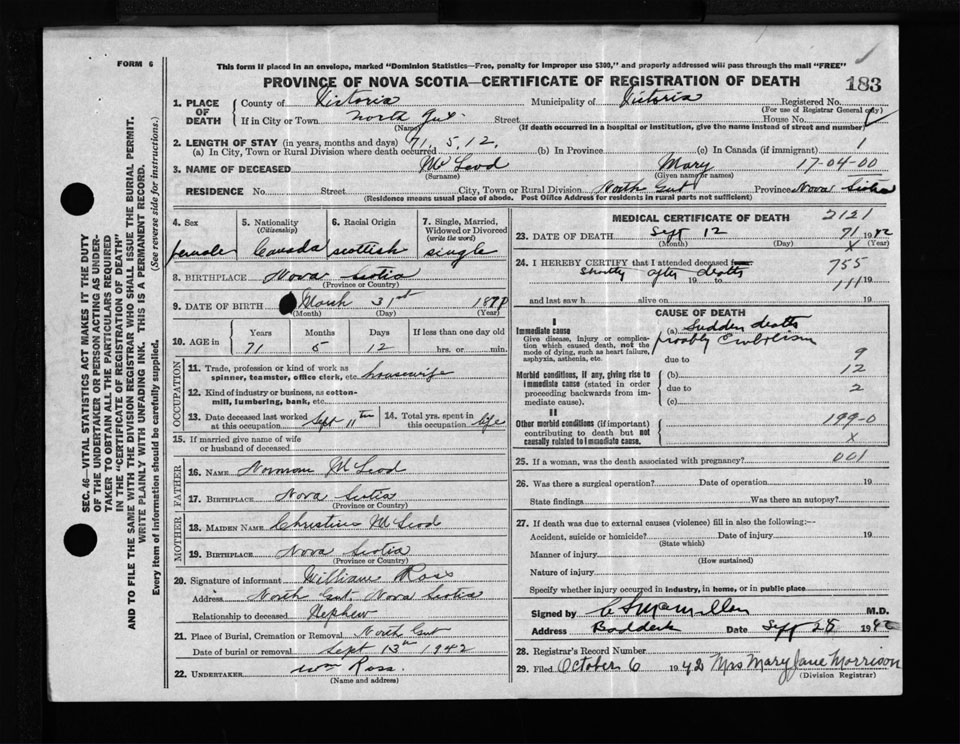 FORM 6
This form if placed in an envelope, marked "Dominion Statistics—Free, penalty for improper use $300," and properly addressed will pass through the mail "FREE"
PROVINCE OF NOVA SCOTIA—CERTIFICATE OF REGISTRATION OF DEATH
183
1. PLACE OF DEATH
County of Victoria Municipality of Victoria Registered No.
(For use of Registrar General only)
If in City or Town North Gut Street House No.
(Name) (If death occurred in a hospital or institution, give the name instead of street and number)
2. LENGTH OF STAY (in years, months and days) 71, 5, 12,
(a) In City, Town or Rural Division where death occurred (b) In Province (c) In Canada (if immigrant) 1
3. NAME OF DECEASED McLeod Mary 17-04-00
(Surname) (Given name or names)
RESIDENCE No. Street City, Town or Rural Division North Gut Province Nova Scotia
(Residence means usual place of abode. Post Office Address for residents in rural parts not sufficient)
SEC. 46—VITAL STATISTICS ACT MAKES IT THE DUTY
OF THE UNDERTAKER OR PERSON ACTING AS UNDER-
TAKER TO OBTAIN ALL THE PARTICULARS REQUIRED
IN THE "CERTIFICATE OF REGISTRATION OF DEATH"
AND TO FILE THE SAME WITH THE DIVISION REGISTRAR WHO SHALL ISSUE THE BURIAL PERMIT.
WRITE PLAINLY WITH UNFADING INK. THIS IS A PERMANENT RECORD.
Every item of Information should be carefully supplied. (See reverse side for instructions.)
4. Sex
female
5. Nationality
(Citizenship)
Canada
6. Racial Origin
scottish
7. Single, Married,
Widowed or Divorced
(write the word)
single
8. BIRTHPLACE Nova Scotia
(Province or Country)
9. DATE OF BIRTH March 31st
(Month) (Day) (Year)
10. AGE in
Years Months Days If less than one day old
71 5 12 hrs. or min.
OCCUPATION
11. Trade, profession or kind of work as
spinner, teamster, office clerk, etc. housewife
12. Kind of industry or business, as cotton-
mill, lumbering, bank, etc.
13. Date deceased last worked
at this occupation Sept 11th
14. Total yrs. spent in
this occupation life
15. If married give name of wife
or husband of deceased
FATHER
16. Name Norman McLeod
17. Birthplace Nova Scotia
(Province or Country)
MOTHER
18. Maiden Name Christina McLeod
19. Birthplace Nova Scotia
(Province or Country)
20. Signature of informant William Ross
Address North Gut, Nova Scotia
Relationship to deceased Nephew
21. Place of Burial, Cremation or Removal North Gut
Date of burial or removal Sept 13th 1942
22. UNDERTAKER Wm Ross.
(Name and address)
MEDICAL CERTIFICATE OF DEATH 2121
23. DATE OF DEATH Sept 12 71 1942
(Month) (Day) x (Year)
24. I HEREBY CERTIFY that I attended deceased from 755
Shortly after death
19 to 111 19
and last saw h alive on 19
CAUSE OF DEATH
I
Immediate cause
Give disease, injury or complica-
tion which caused death, not the
mode of dying, such as heart failure,
asphyxia, asthenia, etc.
(a) Sudden death
probably Embolism
due to 9
Morbid conditions, if any, giving rise to
immediate cause (stated in order
proceeding backwards from im-
mediate cause).
(b) 12
due to 2
(c)
II
Other morbid conditions (if important)
contributing to death but not
causally related to immediate cause.
199-0
x
25. If a woman, was the death associated with pregnancy? 001
26. Was there a surgical operation? Date of operation 19
State findings Was there an autopsy?
27. If death was due to external causes (violence) fill in also the following:—
Accident, suicide or homicide? Date of injury 19
(State which)
Manner of injury
(How sustained)
Nature of injury
Specify whether injury occurred in industry, in home, or in public place
Signed by M.D.
Address Baddeck Date Sept 28 1942
28. Registrar's Record Number
29. Filed October 6 1942 Mrs Mary Jane Morrison
(Division Registrar)